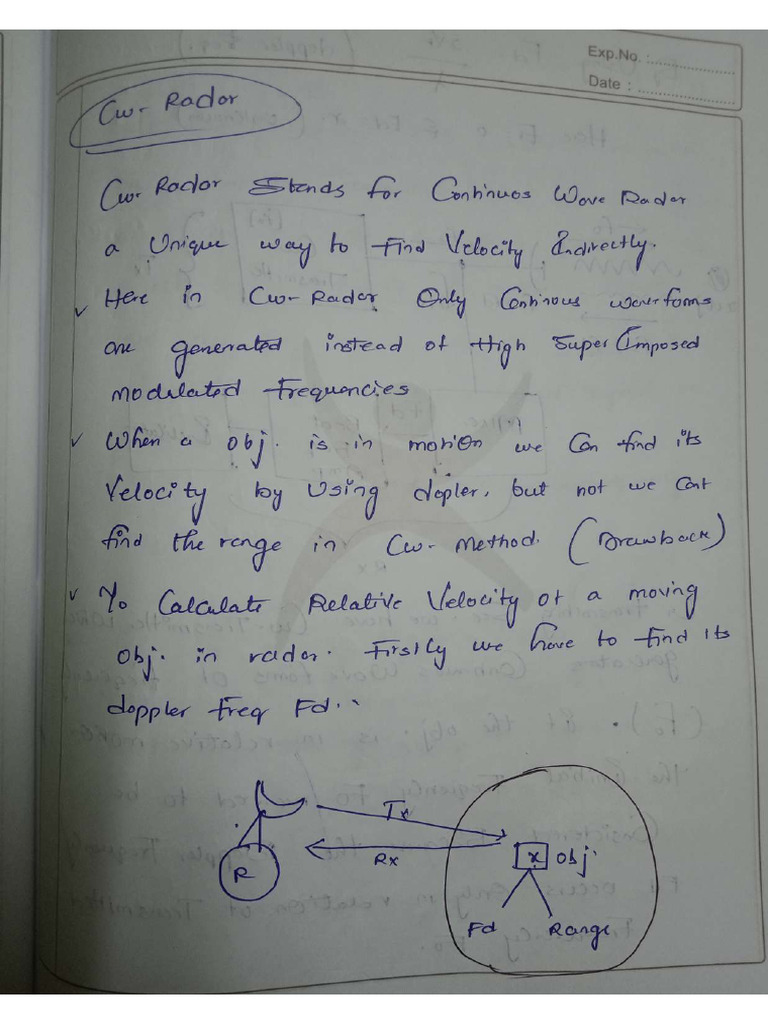 Exp.No. :
Date :
Cw- Rador
Cw- Rador Stands for Continuos Wave Radar
a Unique way to Find Velocity Indirectly.
Here in Cw-Radar Only Continous waveforms
are generated instead of High Super Imposed
modulated Frequencies
When a obj. is in motion we can find its
Velocity by Using dopler, but not we cant
find the range in Cw- method. (Drawback)
To Calculate Relative Velocity of a moving
obj. in radar. Firstly we have to find its
doppler freq Fd..
Tx
Rx
R
x obj.
Fd Range